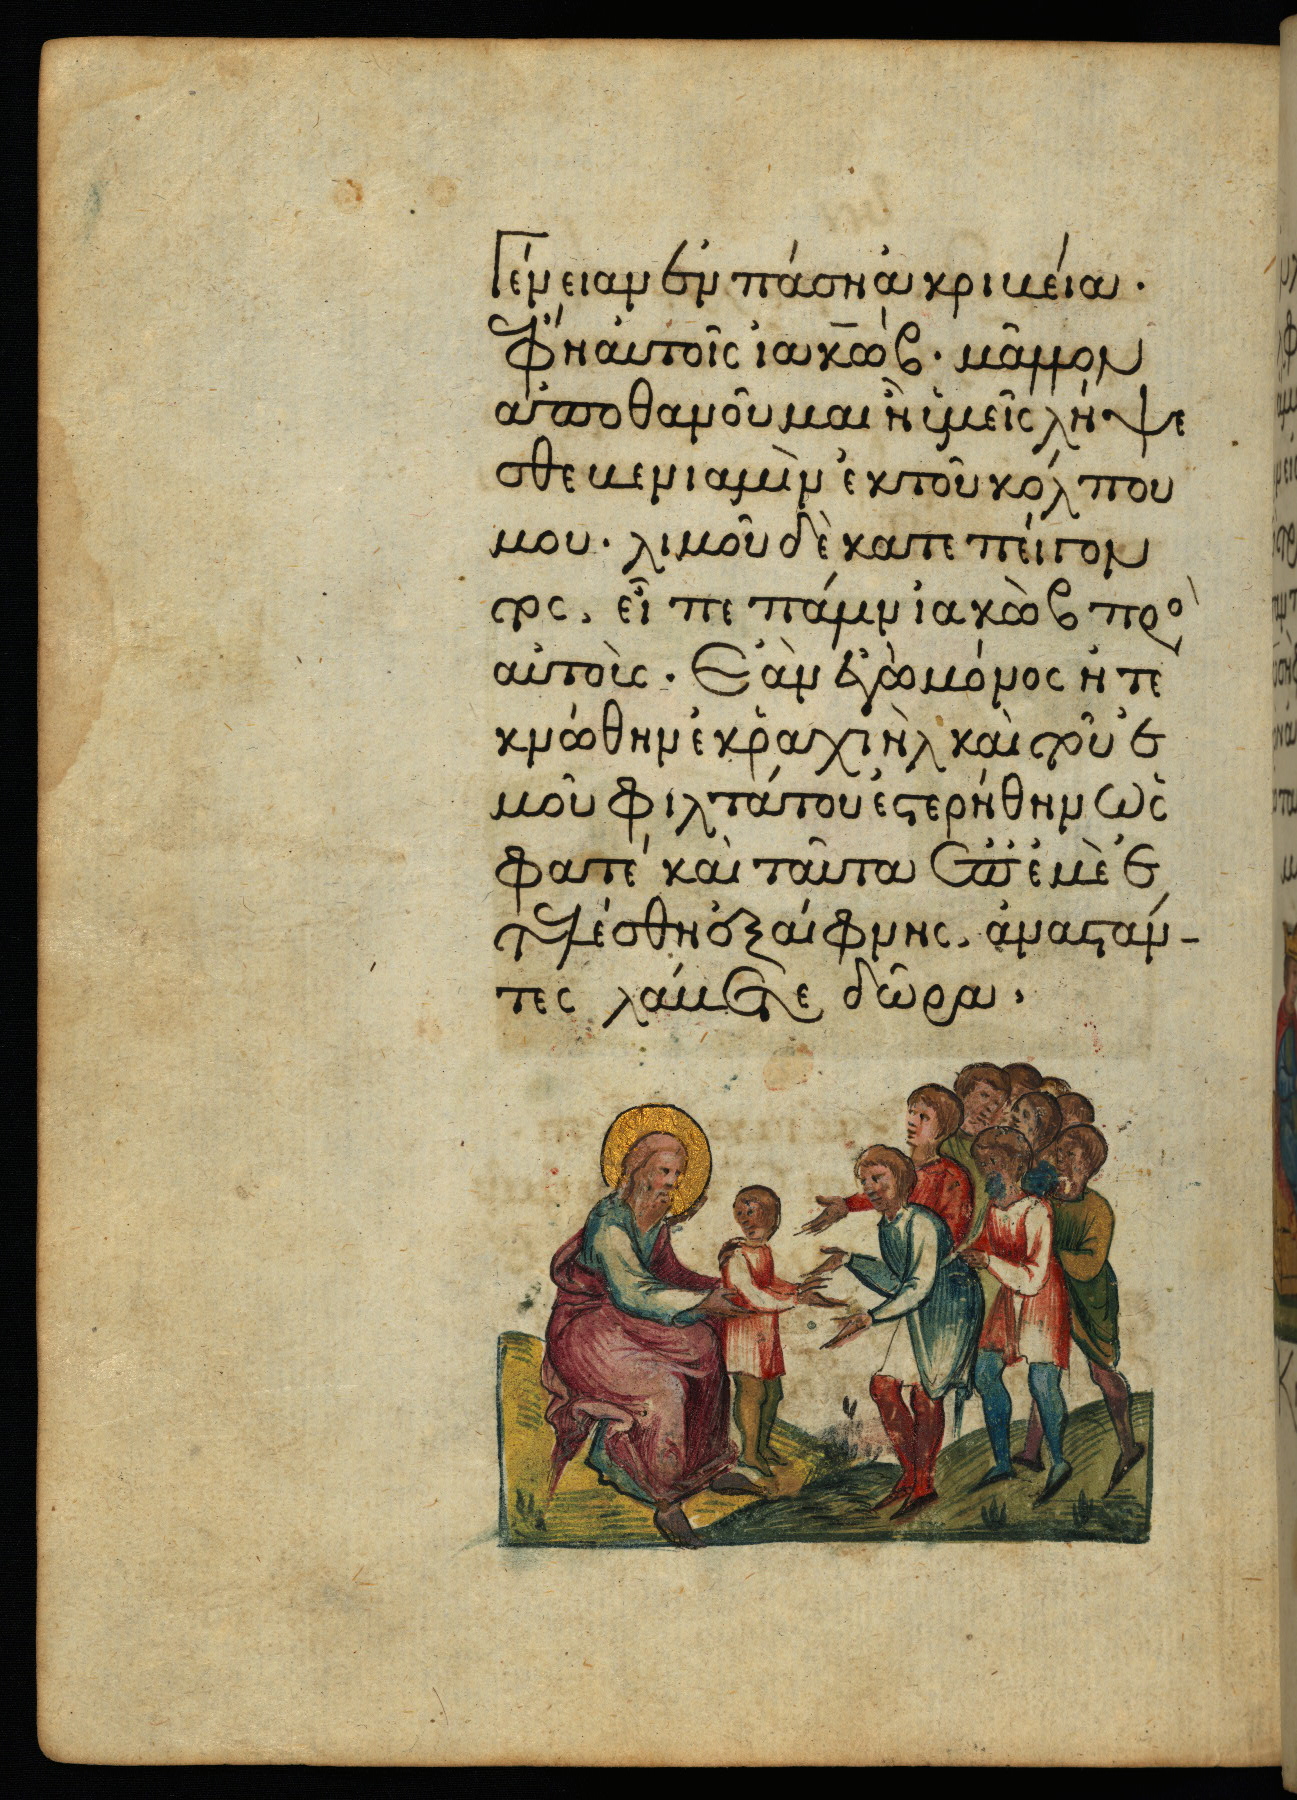 Γένειαν ἐν πάσῃ ἀκριβεία·
Ἔφη αὐτοῖς ἰακὼβ· μᾶλλον
ἀποθανοῦμαι ἢ ὑμεῖς λήψε
σθε βενιαμὶν ἐκ τοῦ κόλπου
μου· λιμοῦ δὲ κατεπείγον
τος, εἶπε πάλιν ἰακὼβ πρὸ
αὐτοὶς· Ἐὰν ἐγὼ μόνος ἠτε
κνώθην ἐκ ῥαχιὴλ καὶ τοῦ ἐ
μοῦ φιλτάτου ἐστερήθην ὡς
φατέ καὶ ταῦτα ἐπ ἐμὲ ἐ
γένεσθη ἐξαίφνης, ἀναστάν-
τες λάβετε δῶρα,